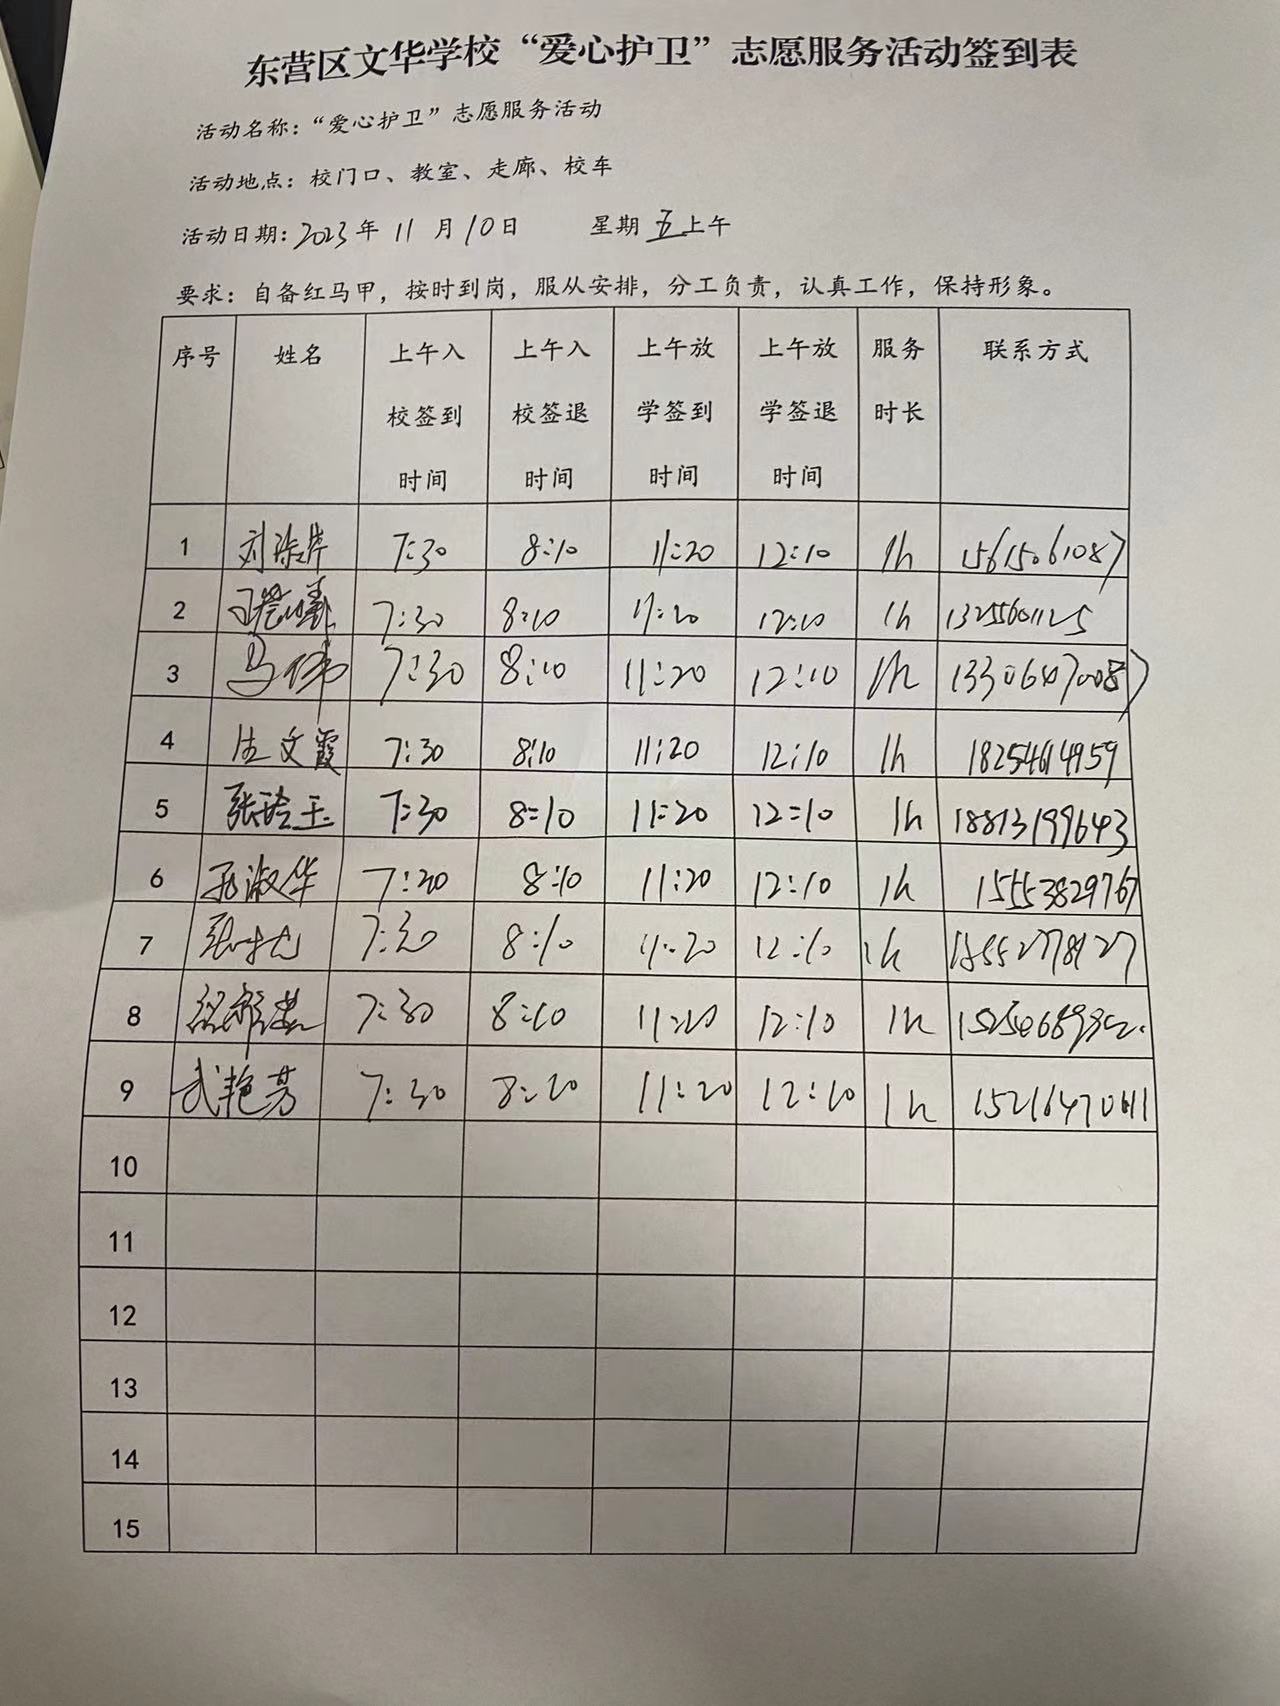 东营区文华学校“爱心护卫”志愿服务活动签到表
活动名称：“爱心护卫”志愿服务活动
活动地点：校门口、教室、走廊、校车
活动日期：2023年 11 月 10日 星期 五上午
要求：自备红马甲，按时到岗，服从安排，分工负责，认真工作，保持形象。
序号 姓名 上午入校签到时间 上午入校签退时间 上午放学签到时间 上午放学签退时间 服务时长 联系方式
1 7:30 8:10 11:20 12:10 1h 15615061087
2 7:30 8:10 11:20 12:10 1h 13255601125
3 马伟 7:30 8:10 11:20 12:10 1h 13306470087
4 文霞 7:30 8:10 11:20 12:10 1h 18254614959
5 张玲玉 7:30 8:10 11:20 12:10 1h 18813199643
6 孙淑华 7:20 8:10 11:20 12:10 1h 15553829767
7 7:30 8:10 11:20 12:10 1h
8 7:30 8:10 11:20 12:10 1h
9 武艳芳 7:30 8:20 11:20 12:10 1h
10
11
12
13
14
15